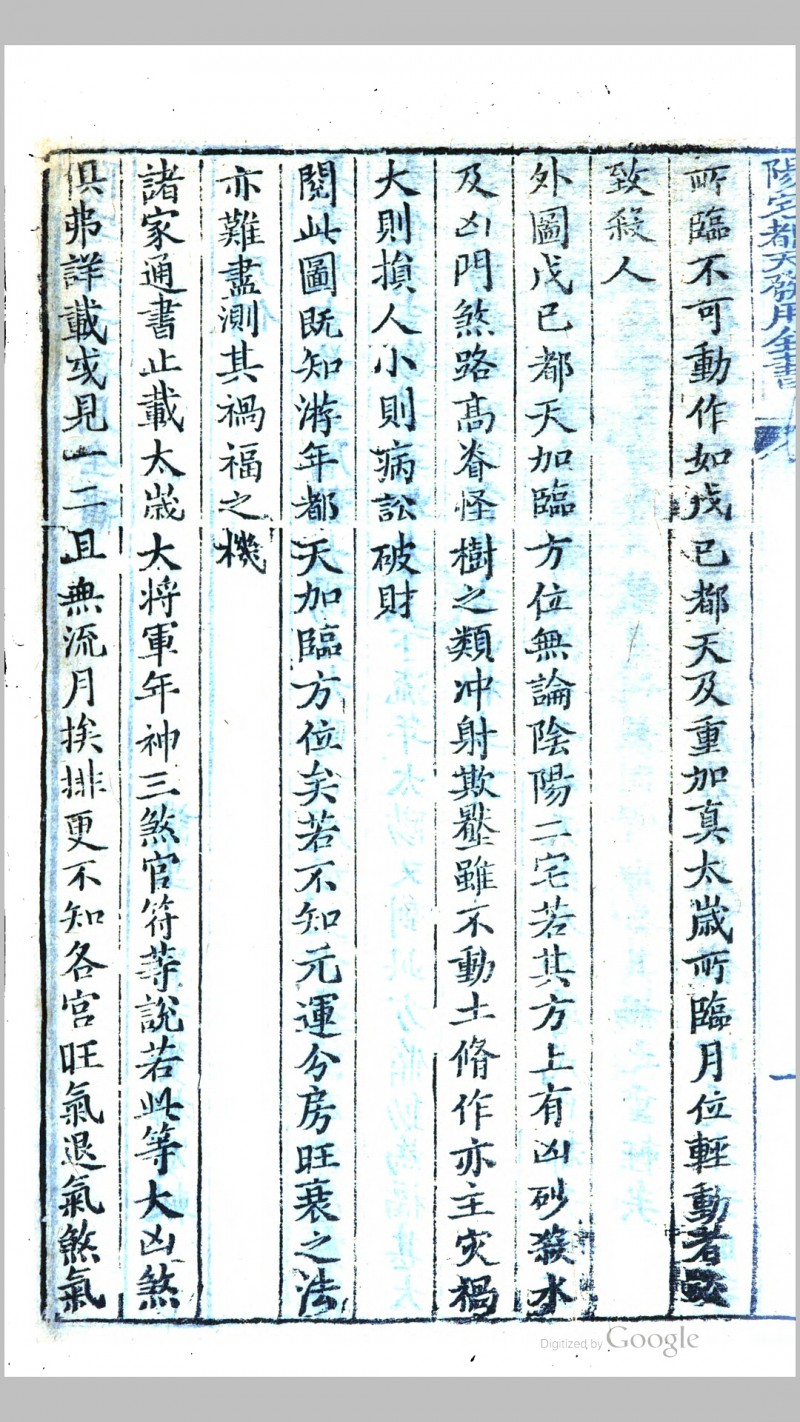 陽宅都天發用全書
一
所臨不可動作如戊己都天及重加真太歲所臨月位輕動者
致殺人
外圖戊己都天加臨方位無論陰陽二宅若其方上有凶砂殺水
及凶門煞路高脊怪樹之類冲射欺壓雖不動土脩作亦主灾禍
大則損人小則病訟破財
閱此圖既知游年都天加臨方位矣若不知元運分房旺衰之法
亦難盡測其禍福之機
諸家通書止載太歲大将軍年神三煞官符䓁說若此等大凶煞
俱弗詳載或見一二且無流月挨排更不知各宮旺氣退氣煞氣
Digitized by Google